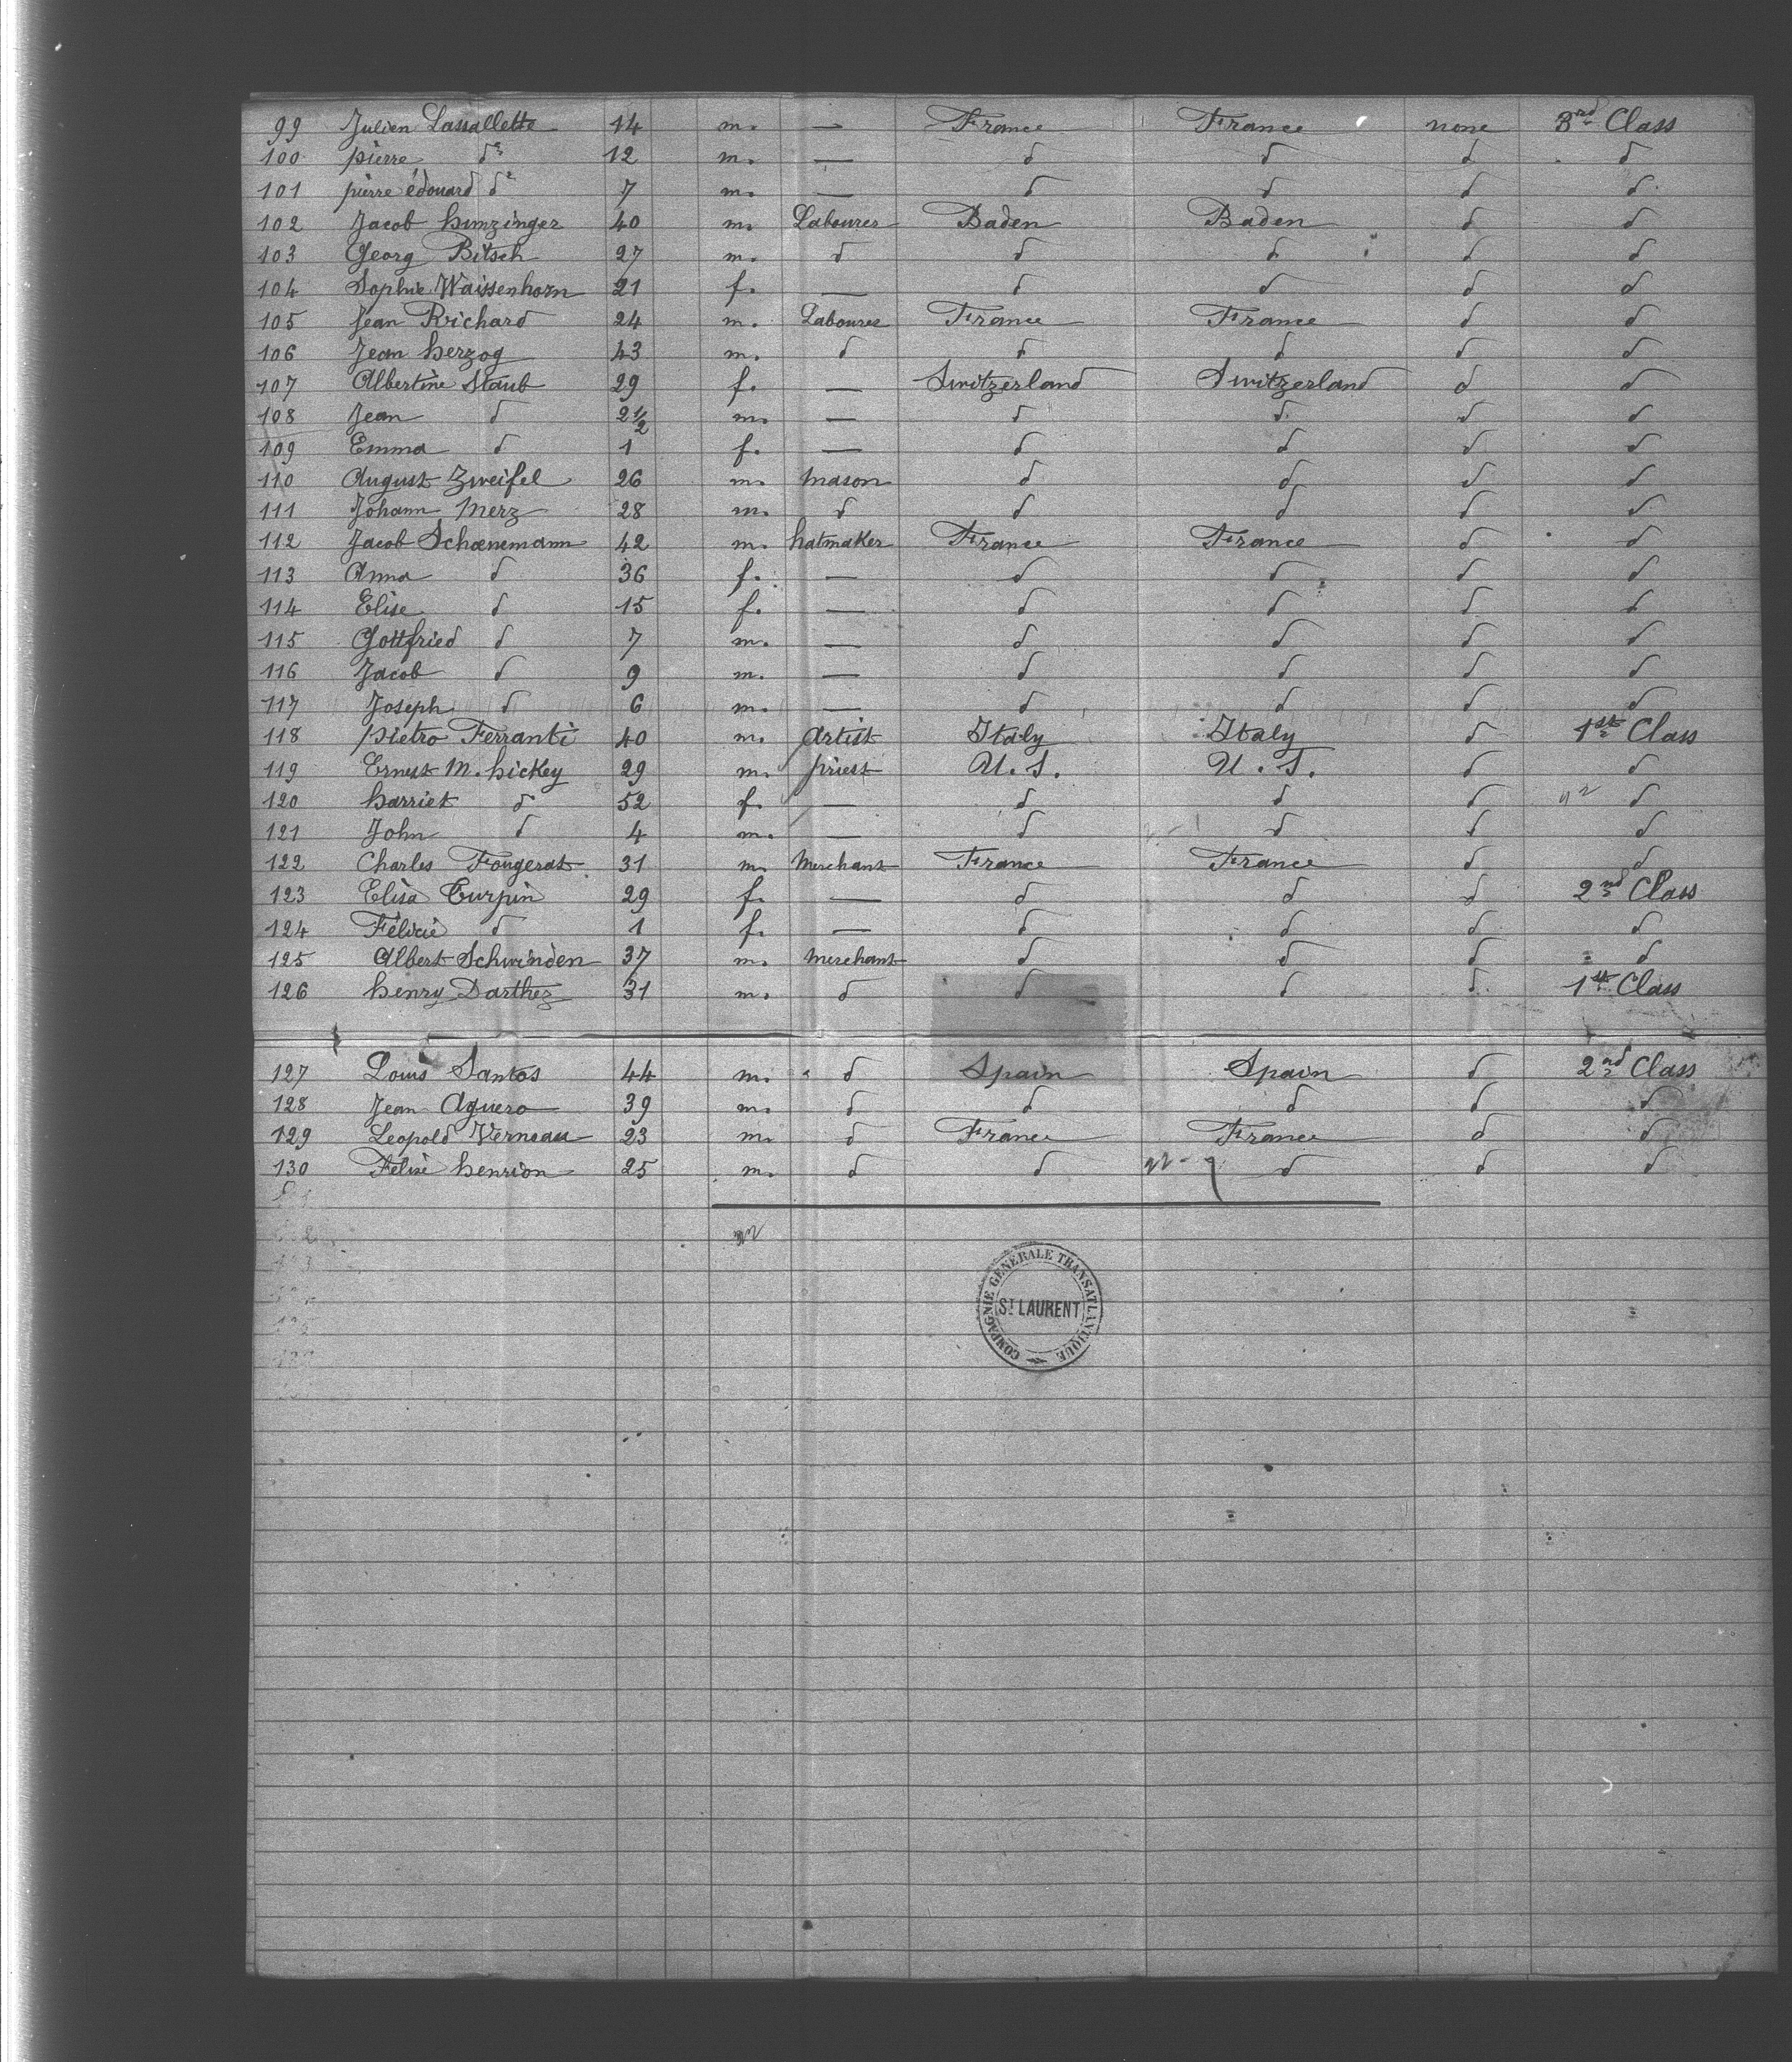 99 Julien Lassallette 14 m. — France France none 3rd Class
100 pierre do 12 m. — d d d d
101 pierre édouard do 7 m. — d d d d
102 Jacob hunzinger 40 m. Labourer Baden Baden d d
103 Georg Bitsch 27 m. d d d d d
104 Sophie Waissenhorn 21 f. — d d d d
105 Jean Richard 24 m. Labourer France France d d
106 Jean herzog 43 m. d d d d d
107 Albertine Staub 29 f. — Switzerland Switzerland d d
108 Jean d 2 1/2 m. — d d d d
109 Emma d 1 f. — d d d d
110 August Zweifel 26 m. mason d d d d
111 Johann Merz 28 m. d d d d d
112 Jacob Schoenemann 42 m. hatmaker France France d d
113 Anna d 36 f. — d d d d
114 Elise d 15 f. — d d d d
115 Gottfried d 7 m. — d d d d
116 Jacob d 9 m. — d d d d
117 Joseph d 6 m. — d d d d
118 pietro Ferranti 40 m. artist Italy Italy d 1st Class
119 Ernest M. hickey 29 m. priest U.S. U.S. d d
120 harriet d 52 f. — d d d d
121 John d 4 m. — d d d d
122 Charles Fougerat 31 m. Merchant France France d d
123 Elisa Turpin 29 f. — d d d 2nd Class
124 Félicie d 1 f. — d d d d
125 Albert Schwinden 37 m. Merchant d d d d
126 henry Darthez 31 m. d d d d 1st Class
127 Louis Santos 44 m. d Spain Spain d 2nd Class
128 Jean Aguero 39 m. d d d d d
129 Leopold Verneau 23 m. d France France d d
130 Felix henrion 25 m. d d d d d
COMPAGNIE GENERALE TRANSATLANTIQUE
ST LAURENT